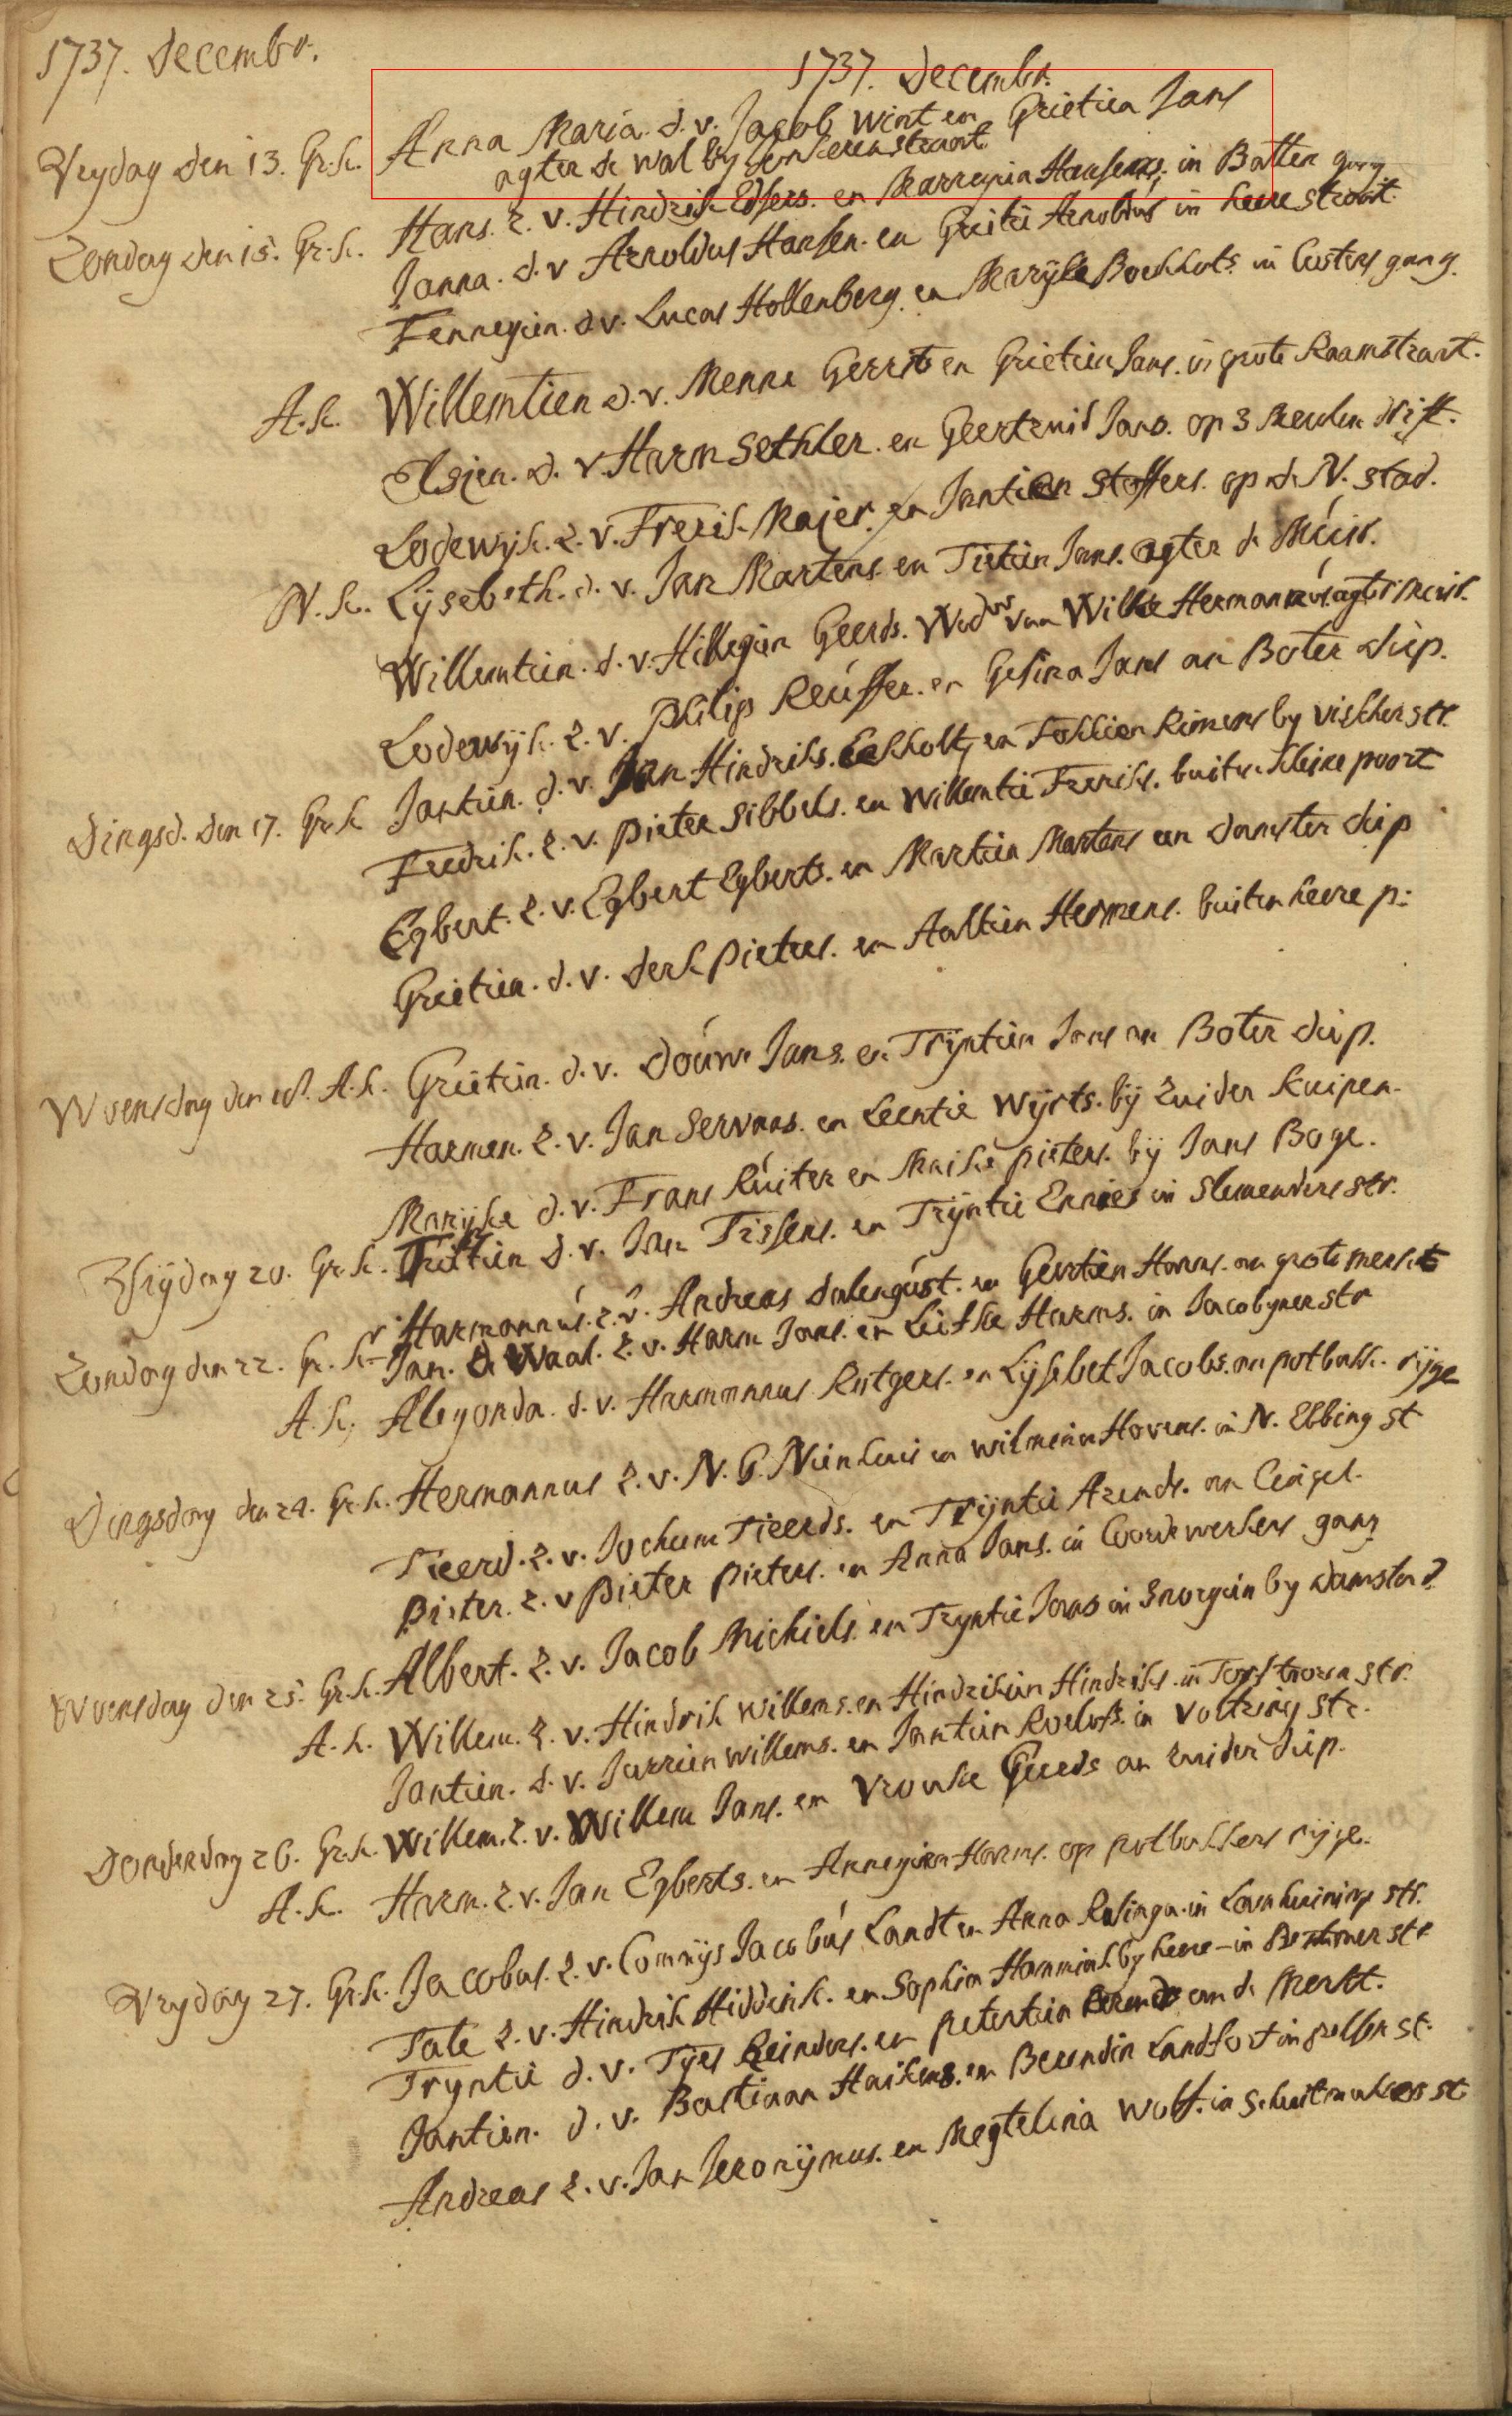 1737. Decembr.
1737. Decembr.
Vrydag den 13. Gr. k. Anna Maria. d. v. Jacob Wint en Grietien Jans
agter de wal by Jonkerenstraat
Zondag den 15. Gr. k. Hans. z. v. Hindrik Edsers. en Marregien Hansens. in Batten gang
Janna. d. v Arnoldus Hansen. en Grietie Arnoldus in heere straat.
Fennegien. d v. Lucas Hollenberg. en Maryke Bockhots in Custers gang.
A. k. Willemtien d. v. Menne Gerrits en Grietien Jans. in grote Raamstraat.
Elsjen. d. v. Harm Sethler. en Geertruid Jans. op 3 Meulen drift.
Lodewyk. z. v. Frerik Majer. en Jantien Stoffers. op de N. stad.
N. k. Lysebeth. d. v. Jan Martens en Tietien Jans. agter de Muir.
Willemtien. d. v. Hillegien Geerds. Wedws van Willke Hermannus. agter Muir.
Lodewyk. z. v. Philip Reusser. en Gesina Jans an Boter diep.
Dingsd. den 17. Gr. k Jantien. d. v. Jan Hindriks. Eekholt, en Fokkien Rimens by visscher str.
Fredrik. z. v. Pieter Sibbels. en Willemtie Freriks. buiten kleine poort
Egbert. z. v. Egbert Egberts. en Martien Martens an damster diep
Grietien. d. v. derk Pieters. en Aaltien Hermens. buiten heere p:
Woensdag den 18. A. k. Grietien. d. v. Douwe Jans. en Tryntien Jans an Boter diep.
Harmen. z. v. Jan Servaas. en Leentie Wyrts. by Zuider Kuipen.
Maryke d. v. Frans Ruiter en Maike pieters. by Jans Boge.
Vrydag 20. Gr. k. Grietien d. v. Jan Tissens. en Tryntie Ennes in Slemenders str.
Harmannus. z. v. Andreas dalengust. en Geertien Harms. an grote merkt
Zondag den 22. Gr. k. Jan. de Waal. z. v. Harm Jans. en Leifke Harms. in Jacobyner str
A. k. Alegonda. d. v. Harmannus Rutgers. en Lysebet Jacobs. an potbakk. ryge
Dingsdag den 24. Gr. k. Hermannus z. v. N. G. Nienhuis en wilmina Hovens. in N. Ebbing st
Tieerd. z. v. Jochum Tieerds. en Tryntie Arends. an Cingel.
Pieter. z. v Pieter Pieters. en Anna Jans. in Coordewerkers gang
Woensdag den 25. Gr. k. Albert. z. v. Jacob Michiels. en Tryntie Jans in Snorgien by damster d.
A. k. Willem. z. v. Hindrik Willems. en Hindrikien Hindriks. in Torstraven str.
Jantien. d. v. Jurrien willems. en Jantien Roelofs. in Voltring str.
Donderdag 26. Gr. k. Willem. z. v. Willem Jans. en Vrouke Geerds an zuider diep.
A. k. Harm. z. v. Jan Egberts. en Annegien Harms. op potbakkers ryge.
Vrydag 27. Gr. k. Jacobus. z. v. Comnys Jacobus Landt en Anna Rosinga. in Lamhuininge str.
Tate z. v. Hindrik Hiddink. en Sophia Hammink by heere - in Bezemer str
Tryntie d. v. Tyes Reinders. en Petertien Berends an de Merkt.
Jantien. d. v. Bastiaan Haikens. en Berendin Landfort in pelster st.
Andreas z. v. Jan Jeronymus. en Megtelina Wolf. in Schuitmakers st